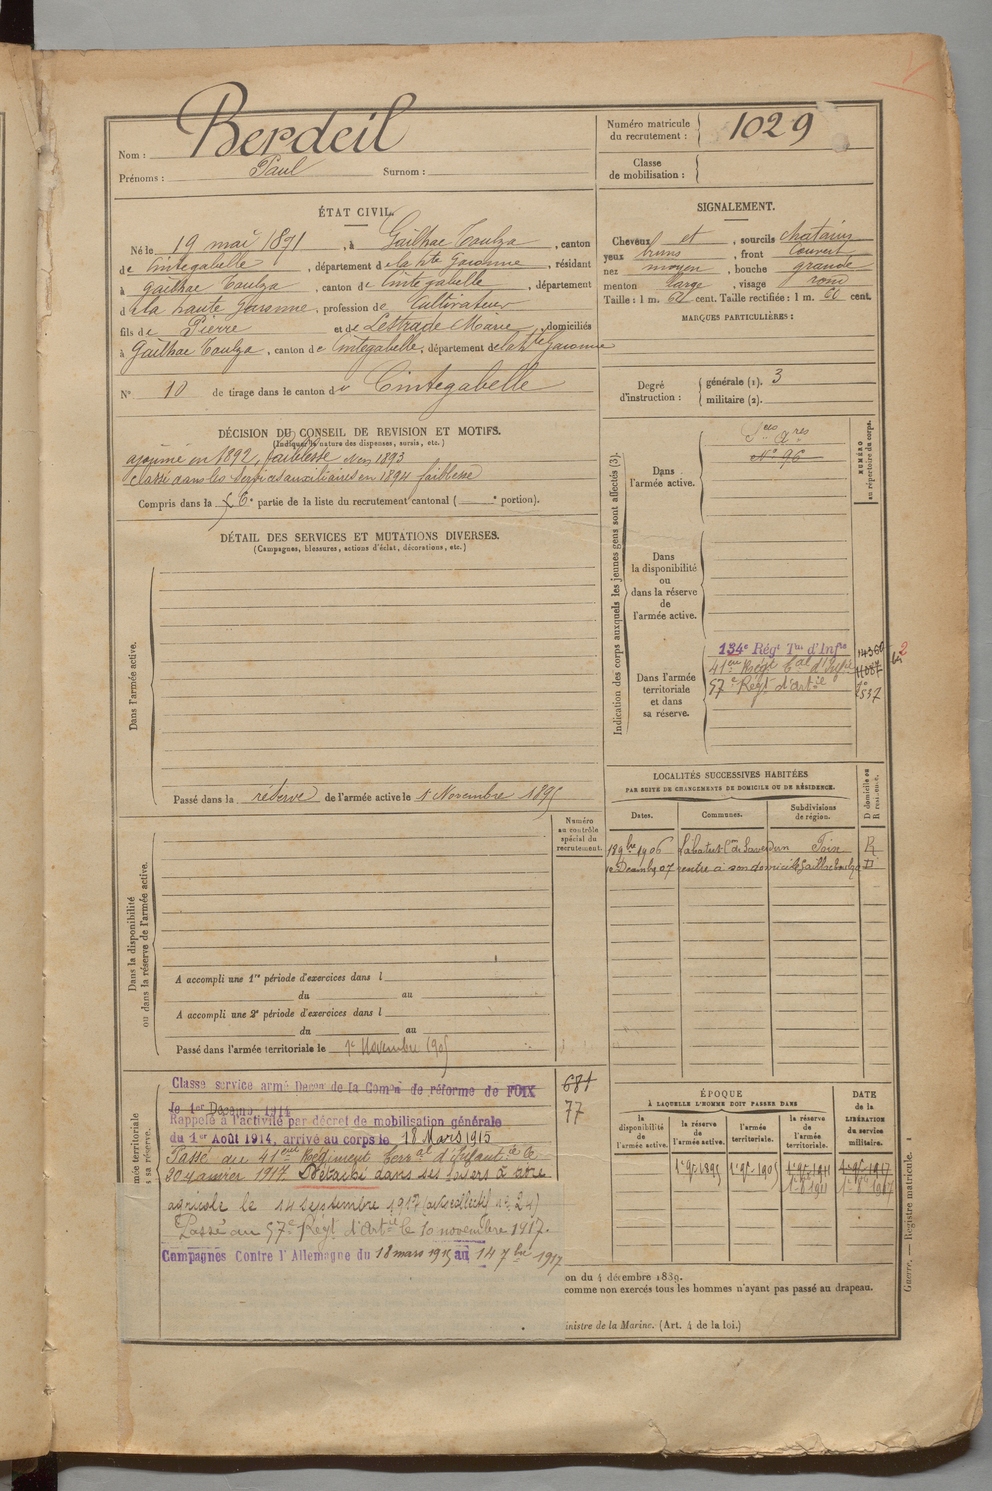 Nom : Berdeil
Prénoms : Paul Surnom :
Numéro matricule du recrutement : 1029
Classe de mobilisation :
ÉTAT CIVIL.
Né le 19 mai 1871, à Gailhac Toulza, canton
de Cintegabelle, département de la Hte Garonne, résidant
à Gailhac Toulza, canton de Cintegabelle, département
d la haute Garonne, profession de Cultivateur
fils de Pierre et de Lestrade Marie, domiciliés
à Gailhac Toulza, canton de Cintegabelle, département de la Hte Garonne
N° 10 de tirage dans le canton du Cintegabelle
SIGNALEMENT.
Cheveux et, sourcils chatains
yeux bruns, front couvert
nez moyen, bouche grande
menton large, visage rond
Taille : 1 m. 62 cent. Taille rectifiée : 1 m. 61 cent.
MARQUES PARTICULIÈRES :
Degré d'instruction : générale (1). 3
militaire (2).
DÉCISION DU CONSEIL DE REVISION ET MOTIFS.
(Indiquer la nature des dispenses, sursis, etc.)
ajourné en 1892, faiblesse en 1893
classé dans les services auxiliaires en 1894 faiblesse
Compris dans la 6e partie de la liste du recrutement cantonal ( e portion).
DÉTAIL DES SERVICES ET MUTATIONS DIVERSES.
(Campagnes, blessures, actions d'éclat, décorations, etc.)
Dans l'armée active.
Passé dans la réserve de l'armée active le 1 Novembre 1895
Indication des corps auxquels les jeunes gens sont affectés (3).
NUMÉRO au répertoire du corps.
Dans l'armée active.
N° 96
Dans la disponibilité ou dans la réserve de l'armée active.
Dans l'armée territoriale et dans sa réserve.
134e Régt Tal d'Infie
41eme Régt Tal d'Infie 11087
57e Régt d'Artie
LOCALITÉS SUCCESSIVES HABITÉES
PAR SUITE DE CHANGEMENTS DE DOMICILE OU DE RÉSIDENCE.
Dates. Communes. Subdivisions de région. D domicile ou R résidence.
18 9bre 1906 Labatut Con de Saverdun Foix R
Decembre 07 rentre à son domicile Gailhac Toulza D
Numéro au contrôle spécial du recrutement.
Dans la disponibilité ou dans la réserve de l'armée active.
A accompli une 1re période d'exercices dans l
du au
A accompli une 2e période d'exercices dans l
du au
Passé dans l'armée territoriale le 1er Novembre 1905
681
77
Classé service armé Décon de la Comon de réforme de FOIX
le 1er Décemb. 1914
Rappelé à l'activité par décret de mobilisation générale
du 1er Août 1914, arrivé au corps le 18 Mars 1915
Passé au 41eme Régiment Terral d'Infanterie le
30 janvier 1917. Détaché dans ses foyers à titre
agricole le 14 septembre 1917 (avis collectif n° 24)
Passé au 57e Régt d'Artie le 10 novembre 1917.
Campagnes Contre l'Allemagne du 18 mars 1915 au 14 7bre 1917
ÉPOQUE
À LAQUELLE L'HOMME DOIT PASSER DANS
la disponibilité de l'armée active. la réserve de l'armée active. l'armée territoriale. la réserve de l'armée territoriale.
DATE de la LIBÉRATION du service militaire.
1er 9bre 1895 1er 9bre 1905 1er 9bre 1911 1er 9bre 1917
on du 4 décembre 1889.
comme non exercés tous les hommes n'ayant pas passé au drapeau.
inistre de la Marine. (Art. 4 de la loi.)
mée territoriale
s sa réserve.
Guerre. — Registre matricule.